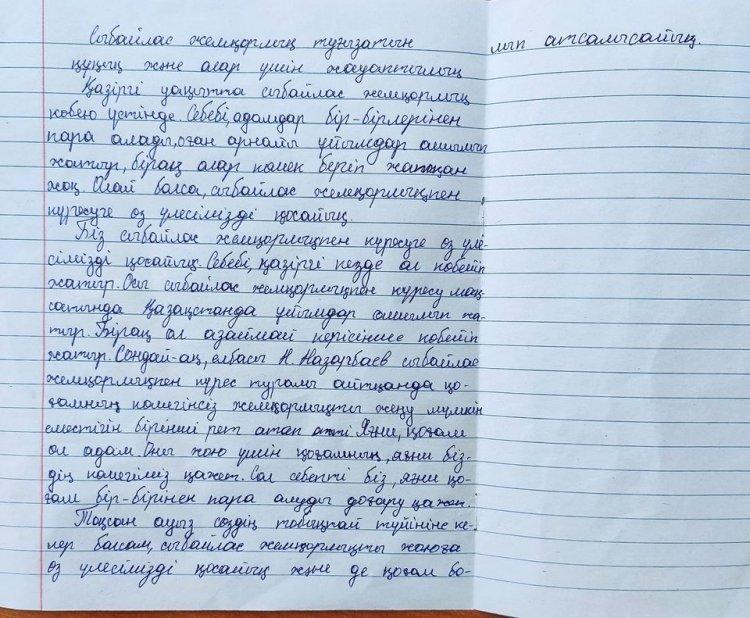 Сыбайлас жемқорлық туғызатын
құқық және олар үшін жауаптылық
Қазіргі уақытта сыбайлас жемқорлық
көбею үстінде. Себебі, адамдар бір-бірлерінен
пара алады, оған арнайы ұйымдар ашылып
жатыр, бірақ олар көмек беріп жатқан
жоқ. Олай болса, сыбайлас жемқорлықпен
күресуге өз үлесімізді қосайық.
Біз сыбайлас жемқорлықпен күресуге өз үле-
сімізді қосайық. Себебі, қазіргі кезде ол көбейіп
жатыр. Осы сыбайлас жемқорлықпен күресу мақ-
сатында Қазақстанда ұйымдар ашылып жа-
тыр. Бірақ ол азаймай керісінше көбейіп
жатыр. Сондай-ақ, елбасы Н. Назарбаев сыбайлас
жемқорлықпен күрес туралы айтқанда қо-
ғамның көмегінсіз жемқорлықты жеңу мүмкін
еместігін бірінші рет атап өтті. Яғни, қоғам
ол адам. Оны жою үшін қоғамның, яғни біз-
дің көмегіміз қажет. Сол себепті біз, яғни қо-
ғам бір-бірінен пара алуды доғару қажет.
Тоқсан ауыз сөздің тобықтай түйініне ке-
лер болсам, сыбайлас жемқорлықты жоюға
өз үлесімізді қосайық және де қоғам бо-
лып атсалысайық.